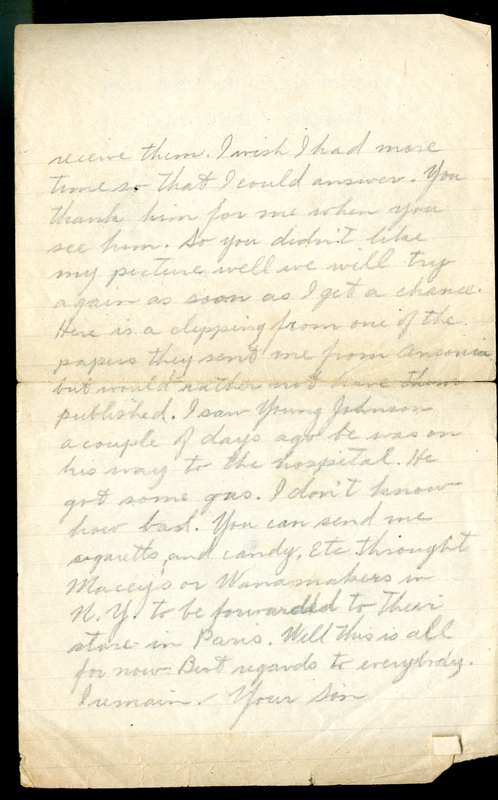 receive them. I wish I had more
time so that I could answer. You
thank him for me when you
see him. So you didn't like
my picture well we will try
again as soon as I get a chance.
Here is a clipping from one of the
papers they sent me from Ansonia
but would rather not have them
published. I saw Young Johnson
a couple of days ago he was on
his way to the hospital. He
got some gas. I don't know
how bad. You can send me
cigaretts, and candy, Etc throught
Maceys or Wanamakers in
N.Y. to be forwarded to their
store in Paris. Well this is all
for now. Best regards to everybody.
I remain. Your Son